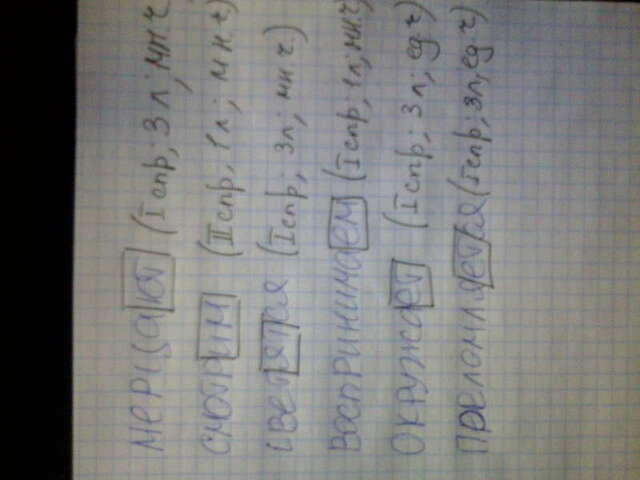 мерцают (I спр; 3 л; мн ч)
смотрим (II спр, 1 л; мн ч)
светятся (I спр; 3л; мн ч)
воспринимаем (I спр, 1 л; мн.ч)
окружает (I спр; 3 л; ед ч)
преломляется (I спр; 3л, ед ч)